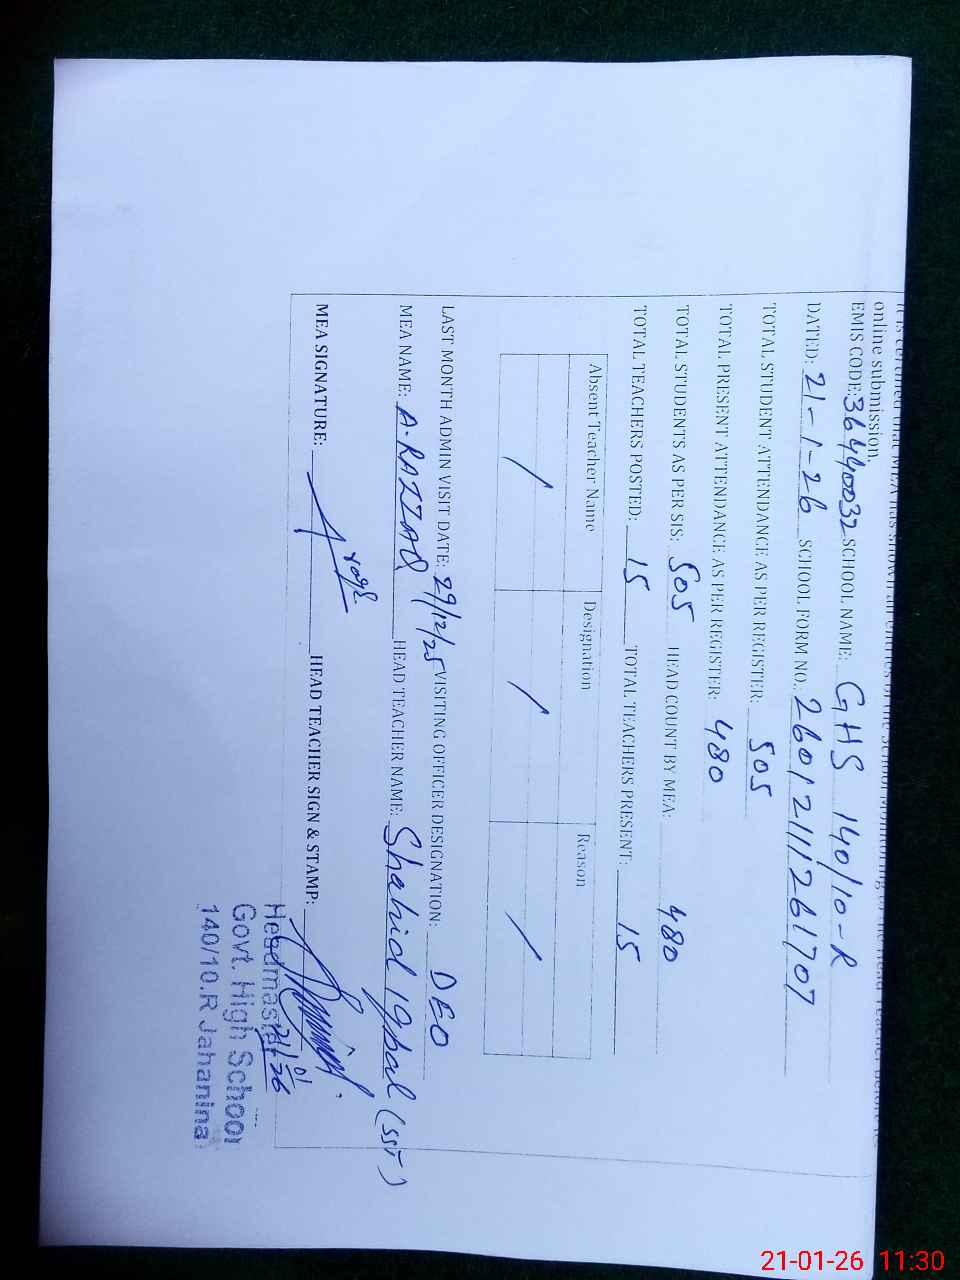 It is certified that MEA has shown all entries of the School Monitoring to the Head Teacher before
online submission.
EMIS CODE: 36440032 SCHOOL NAME: GHS 140/10-R
DATED: 21-1-26 SCHOOL FORM NO.: 26012111261707
TOTAL STUDENT ATTENDANCE AS PER REGISTER: 505
TOTAL PRESENT ATTENDANCE AS PER REGISTER: 480
TOTAL STUDENTS AS PER SIS: 505 HEAD COUNT BY MEA: 480
TOTAL TEACHERS POSTED: 15 TOTAL TEACHERS PRESENT: 15
Absent Teacher Name Designation Reason
/ / /
LAST MONTH ADMIN VISIT DATE: 29/12/25 VISITING OFFICER DESIGNATION: DEO
MEA NAME: A.RAZZAQ HEAD TEACHER NAME: Shahid Iqbal (SST)
MEA SIGNATURE: HEAD TEACHER SIGN & STAMP:
Headmaster
Govt. High School
140/10.R Jahanina
21-01-26 11:30